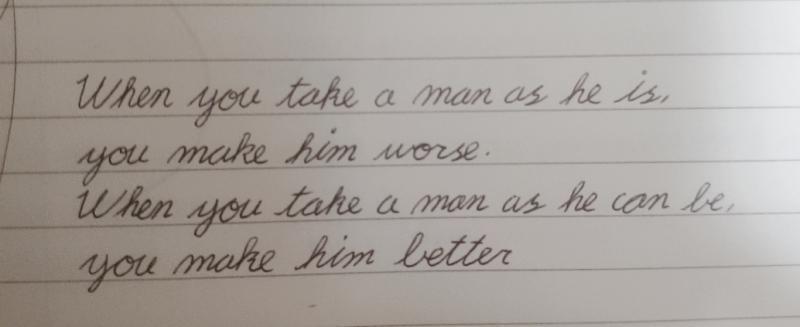 When you take a man as he is,
you make him worse.
When you take a man as he can be,
you make him better